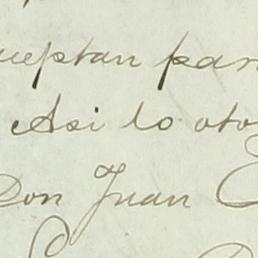 ueptan par
Asi lo oto
Don Juan E